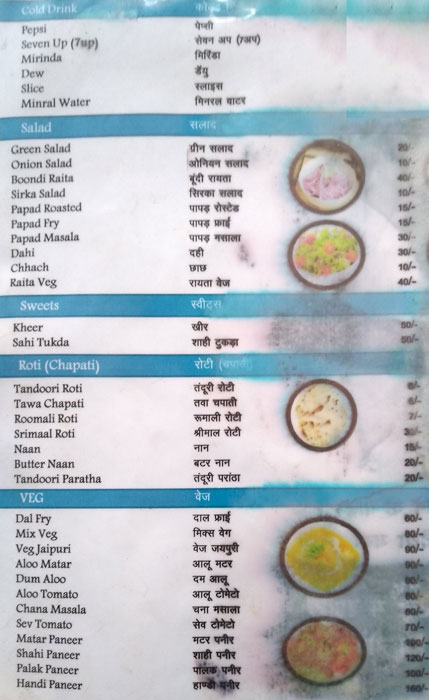 Cold Drink
Pepsi पेप्सी
Seven Up (7up) सेवन अप (7अप)
Mirinda मिरिंडा
Dew डॅयु
Slice स्लाइस
Minral Water मिनरल वाटर
Salad सलाद
Green Salad ग्रीन सलाद 20/-
Onion Salad ओनियन सलाद 10/-
Boondi Raita बूंदी रायता 40/-
Sirka Salad सिरका सलाद 10/-
Papad Roasted पापड़ रोस्टेड 15/-
Papad Fry पापड़ फ्राई 15/-
Papad Masala पापड़ मसाला 30/-
Dahi दही 30/-
Chhach छाछ 10/-
Raita Veg रायता वेज 40/-
Sweets स्वीट्स
Kheer खीर 50/-
Sahi Tukda शाही टुकड़ा 50/-
Roti (Chapati) रोटी (चपाती)
Tandoori Roti तंदूरी रोटी 6/-
Tawa Chapati तवा चपाती 6/-
Roomali Roti रूमाली रोटी 7/-
Srimaal Roti श्रीमाल रोटी
Naan नान 15/-
Butter Naan बटर नान 20/-
Tandoori Paratha तंदूरी परांठा 20/-
VEG वेज
Dal Fry दाल फ्राई 60/-
Mix Veg मिक्स वेग 80/-
Veg Jaipuri वेज जयपुरी 90/-
Aloo Matar आलू मटर
Dum Aloo दम आलू
Aloo Tomato आलू टोमेटो
Chana Masala चना मसाला
Sev Tomato सेव टोमेटो 70/-
Matar Paneer मटर पनीर
Shahi Paneer शाही पनीर 120/-
Palak Paneer पालक पनीर 100/-
Handi Paneer हाण्डी पनीर 160/-